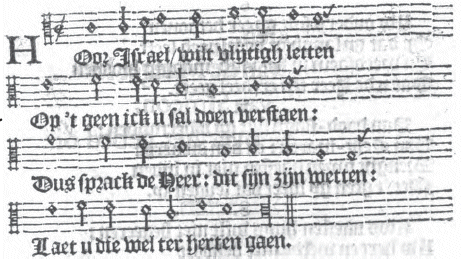 HOor Israel/wilt vlytigh letten
Op 't geen ick u sal doen verstaen:
Dus sprack de Heer: dit sijn zijn wetten:
Laet u die wel ter herten gaen.